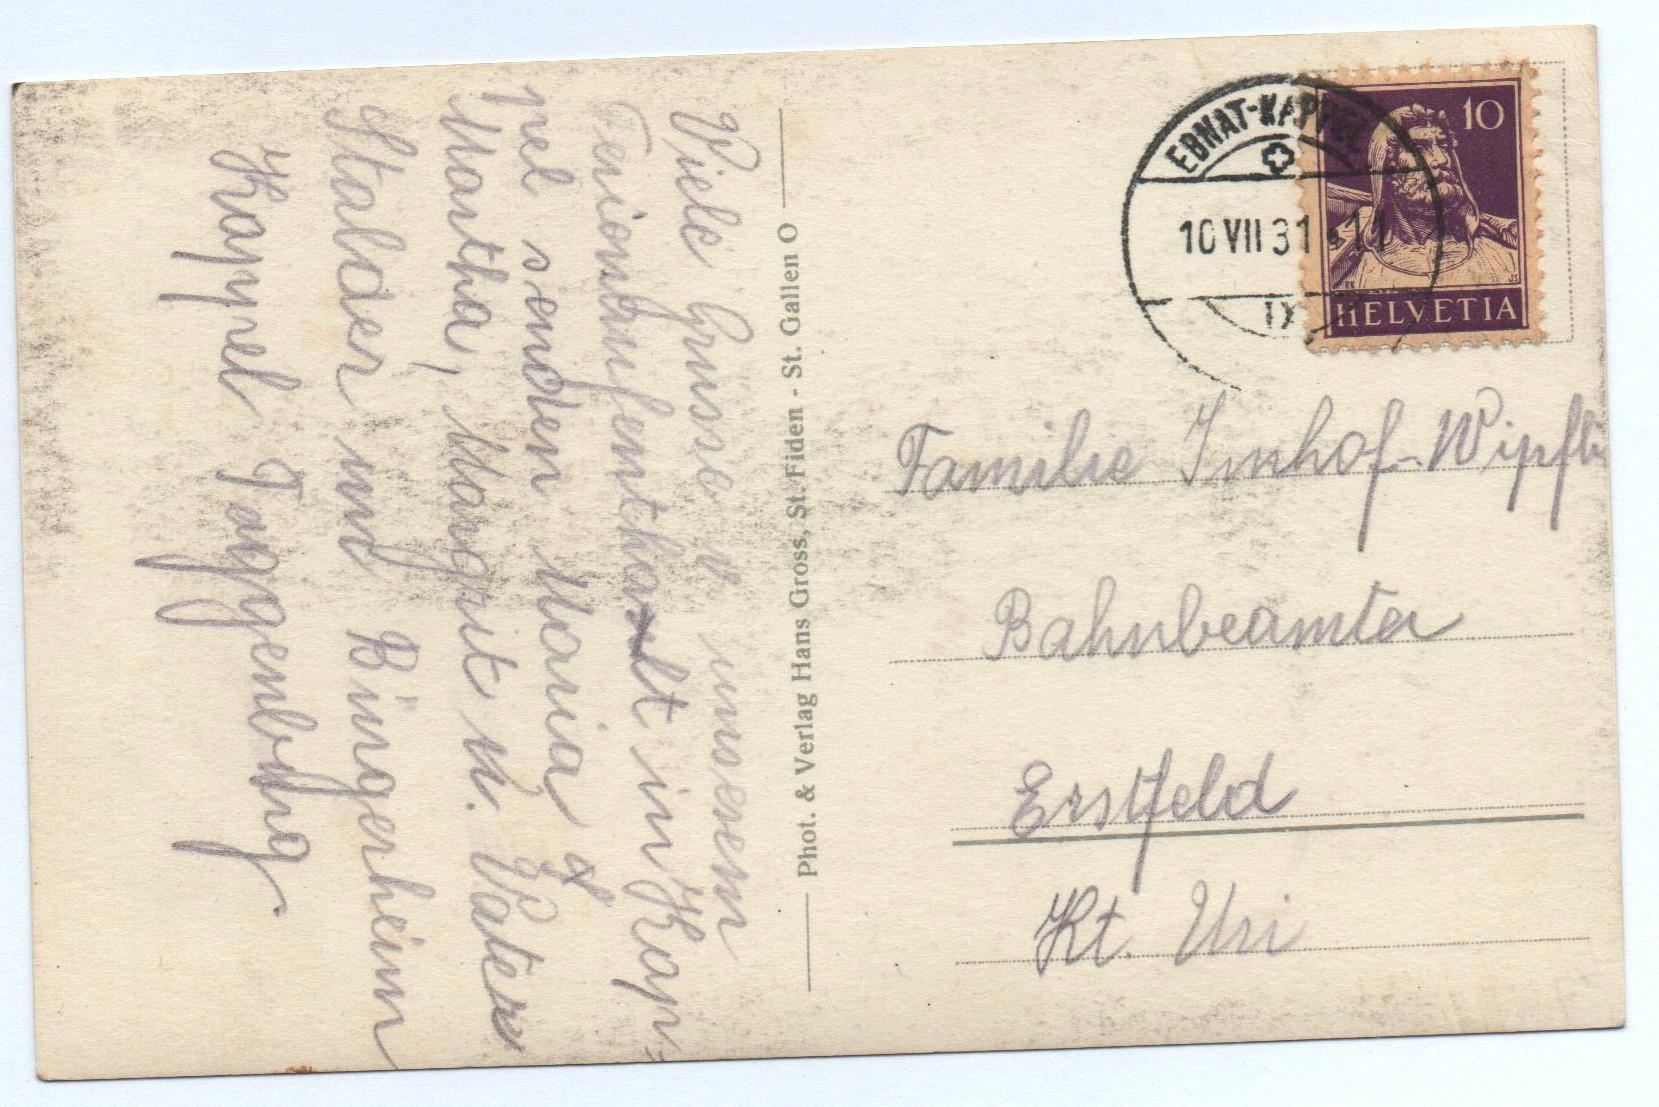 Viele Grüsse v unserem
Ferienaufenthalt in Kap=
pel senden Maria &
Martha, Margrit u. Vater
Stalder und Büngerheim
Kappel Toggenburg
Phot. & Verlag Hans Gross, St. Fiden - St. Gallen O
EBNAT-KAPPEL
10 VII 31 11
IX
10
HELVETIA
Familie Imhof-Wipfli
Bahnbeamter
Erstfeld
Kt. Uri